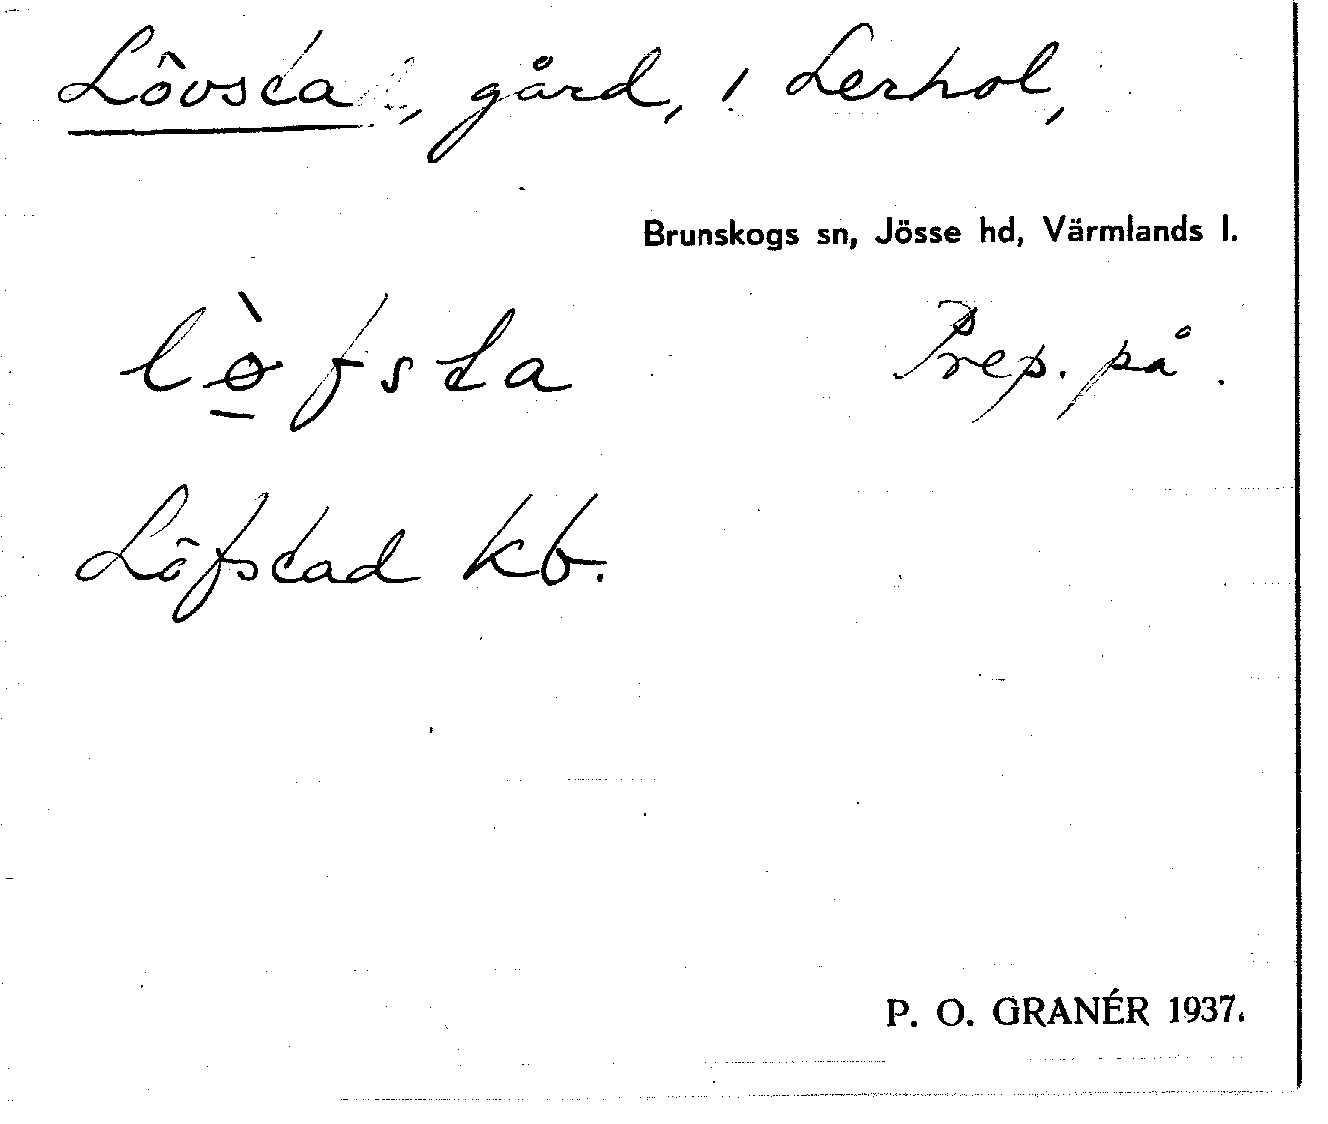 Lövsta, gård, i Lerhol,
Brunskogs sn, Jösse hd, Värmlands l.
lø̠̀fsta Prep. på.
Löfstad kb.
P. O. GRANÉR 1937.